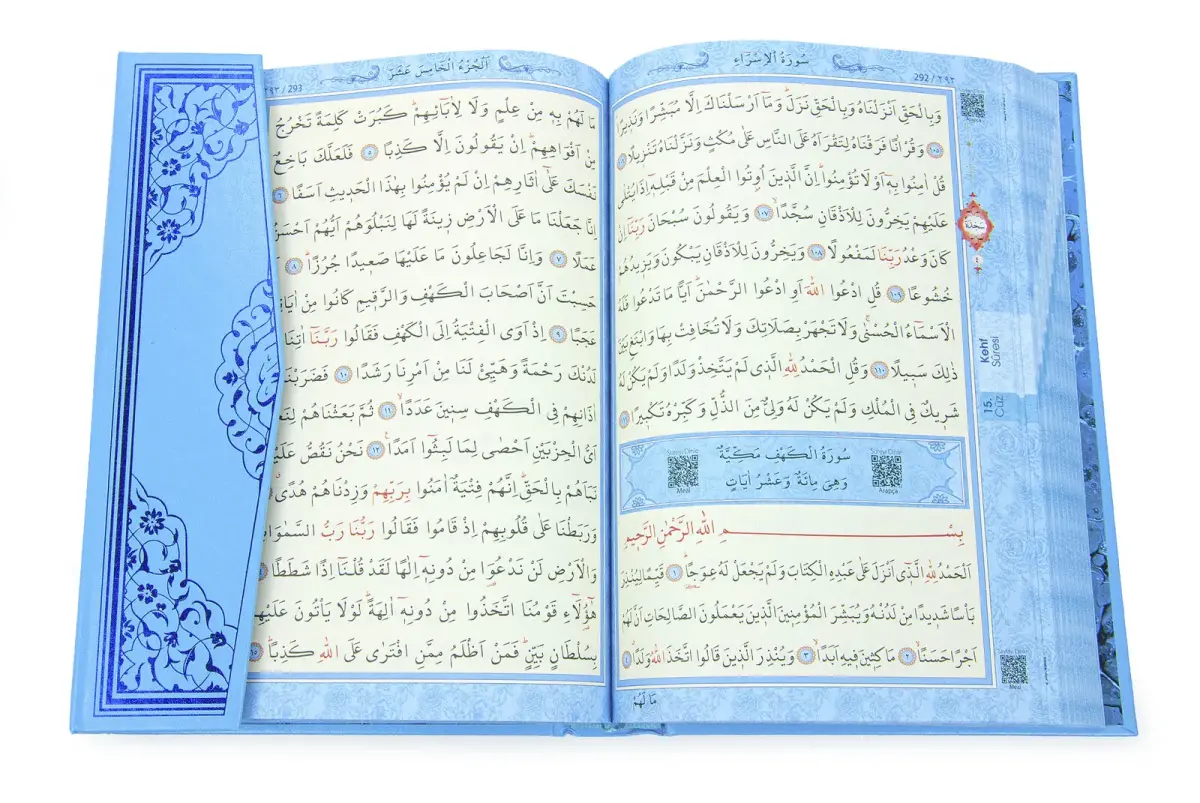 سُورَةُ الْاِسْرَاءِ
292 / ٢٩٢
وَبِالْحَقِّ اَنْزَلْنَاهُ وَبِالْحَقِّ نَزَلَۜ وَمَٓا اَرْسَلْنَاكَ اِلَّا مُبَشِّرًا وَنَذِيرًاۢ
﴿١٠٥﴾ وَقُرْاٰنًا فَرَقْنَاهُ لِتَقْرَاَهُ عَلَى النَّاسِ عَلٰى مُكْثٍ وَنَزَّلْنَاهُ تَنْزِيلًا ﴿١٠٦﴾
قُلْ اٰمِنُوا بِهٖٓ اَوْ لَا تُؤْمِنُواۜ اِنَّ الَّذِينَ اُوتُوا الْعِلْمَ مِنْ قَبْلِهٖٓ اِذَا يُتْلٰى
عَلَيْهِمْ يَخِرُّونَ لِلْاَذْقَانِ سُجَّدًاۙ ﴿١٠٧﴾ وَيَقُولُونَ سُبْحَانَ رَبِّنَٓا اِنْ
كَانَ وَعْدُ رَبِّنَا لَمَفْعُولًا ﴿١٠٨﴾ وَيَخِرُّونَ لِلْاَذْقَانِ يَبْكُونَ وَيَزِيدُهُمْ
خُشُوعًا ﴿١٠٩﴾ قُلِ ادْعُوا اللّٰهَ اَوِ ادْعُوا الرَّحْمٰنَۜ اَيًّا مَا تَدْعُوا فَلَهُ
الْاَسْمَٓاءُ الْحُسْنٰىۚ وَلَا تَجْهَرْ بِصَلَاتِكَ وَلَا تُخَافِتْ بِهَا وَابْتَغِ بَيْنَ
ذٰلِكَ سَبِيلًا ﴿١١٠﴾ وَقُلِ الْحَمْدُ لِلّٰهِ الَّذِي لَمْ يَتَّخِذْ وَلَدًا وَلَمْ يَكُنْ لَهُ
شَرِيكٌ فِي الْمُلْكِ وَلَمْ يَكُنْ لَهُ وَلِيٌّ مِنَ الذُّلِّ وَكَبِّرْهُ تَكْبِيرًا ﴿١١١﴾
سُورَةُ الْكَهْفِ مَكِّيَّةٌ
وَهِيَ مِائَةٌ وَعَشْرُ اٰيَاتٍ
Meâl
Arapça
بِسْمِ اللّٰهِ الرَّحْمٰنِ الرَّحِيمِ
اَلْحَمْدُ لِلّٰهِ الَّذِٓي اَنْزَلَ عَلٰى عَبْدِهِ الْكِتَابَ وَلَمْ يَجْعَلْ لَهُ عِوَجًاۜ ﴿١﴾ قَيِّمًا لِيُنْذِرَ
بَاْسًا شَدِيدًا مِنْ لَدُنْهُ وَيُبَشِّرَ الْمُؤْمِنِينَ الَّذِينَ يَعْمَلُونَ الصَّالِحَاتِ اَنَّ لَهُمْ
اَجْرًا حَسَنًاۙ ﴿٢﴾ مَاكِثِينَ فِيهِ اَبَدًاۙ ﴿٣﴾ وَيُنْذِرَ الَّذِينَ قَالُوا اتَّخَذَ اللّٰهُ وَلَدًاۗ ﴿٤﴾
مَا لَهُمْ
سَجْدَة
Kehf
Sûresi
15.
Cüz
Meâl
اَلْجُزْءُ الْخَامِسَ عَشَرَ
٢٩٣ / 293
مَا لَهُمْ بِهٖ مِنْ عِلْمٍ وَلَا لِاٰبَٓائِهِمْۜ كَبُرَتْ كَلِمَةً تَخْرُجُ
مِنْ اَفْوَاهِهِمْۜ اِنْ يَقُولُونَ اِلَّا كَذِبًا ﴿٥﴾ فَلَعَلَّكَ بَاخِعٌ
نَفْسَكَ عَلٰٓى اٰثَارِهِمْ اِنْ لَمْ يُؤْمِنُوا بِهٰذَا الْحَدِيثِ اَسَفًا ﴿٦﴾
اِنَّا جَعَلْنَا مَا عَلَى الْاَرْضِ زِينَةً لَهَا لِنَبْلُوَهُمْ اَيُّهُمْ اَحْسَنُ
عَمَلًا ﴿٧﴾ وَاِنَّا لَجَاعِلُونَ مَا عَلَيْهَا صَعِيدًا جُرُزًاۜ ﴿٨﴾
حَسِبْتَ اَنَّ اَصْحَابَ الْكَهْفِ وَالرَّقِيمِ كَانُوا مِنْ اٰيَاتِنَا
عَجَبًا ﴿٩﴾ اِذْ اَوَى الْفِتْيَةُ اِلَى الْكَهْفِ فَقَالُوا رَبَّنَٓا اٰتِنَا
لَدُنْكَ رَحْمَةً وَهَيِّئْ لَنَا مِنْ اَمْرِنَا رَشَدًا ﴿١٠﴾ فَضَرَبْنَا
اٰذَانِهِمْ فِي الْكَهْفِ سِنِينَ عَدَدًاۙ ﴿١١﴾ ثُمَّ بَعَثْنَاهُمْ لِنَعْلَمَ
اَيُّ الْحِزْبَيْنِ اَحْصٰى لِمَا لَبِثُٓوا اَمَدًاۚ ﴿١٢﴾ نَحْنُ نَقُصُّ عَلَيْكَ
نَبَاَهُمْ بِالْحَقِّۜ اِنَّهُمْ فِتْيَةٌ اٰمَنُوا بِرَبِّهِمْ وَزِدْنَاهُمْ هُدًىۗ
وَرَبَطْنَا عَلٰى قُلُوبِهِمْ اِذْ قَامُوا فَقَالُوا رَبُّنَا رَبُّ السَّمٰوَاتِ
وَالْاَرْضِ لَنْ نَدْعُوَا مِنْ دُونِهٖٓ اِلٰهًا لَقَدْ قُلْنَٓا اِذًا شَطَطًا
هٰٓؤُ۬لَٓاءِ قَوْمُنَا اتَّخَذُوا مِنْ دُونِهٖٓ اٰلِهَةًۜ لَوْلَا يَاْتُونَ عَلَيْهِمْ
بِسُلْطَانٍ بَيِّنٍۜ فَمَنْ اَظْلَمُ مِمَّنِ افْتَرٰى عَلَى اللّٰهِ كَذِبًاۜ ﴿١٥﴾